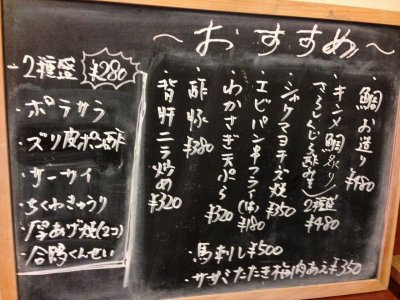 〜おすすめ〜
・鯛お造り ¥480
・キンメ鯛炙り
(さらしくじら酢みそ) 2種盛 ¥480
・ジャクマヨチーズ焼 ¥350
・エビパン串フライ(1本) ¥180
・わかさぎ天ぷら ¥320
・酢豚 ¥380
・背肝ニラ炒め ¥320
・馬刺し ¥500
・ササミたたき梅肉あえ ¥350
・2種盛 ¥280
・ポテサラ
・ズリ皮ポン酢
・ザーサイ
・ちくわきゅうり
・厚あげ焼(2コ)
・合鴨くんせい